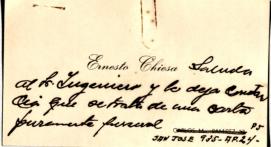 Ernesto Chiesa Saluda
al Sr. Ingeniero y le deja constan
cia que se trata de una carta
puramente personal
CARLOS M. RAMIREZ PS
SAN JOSE 935-AP.24-